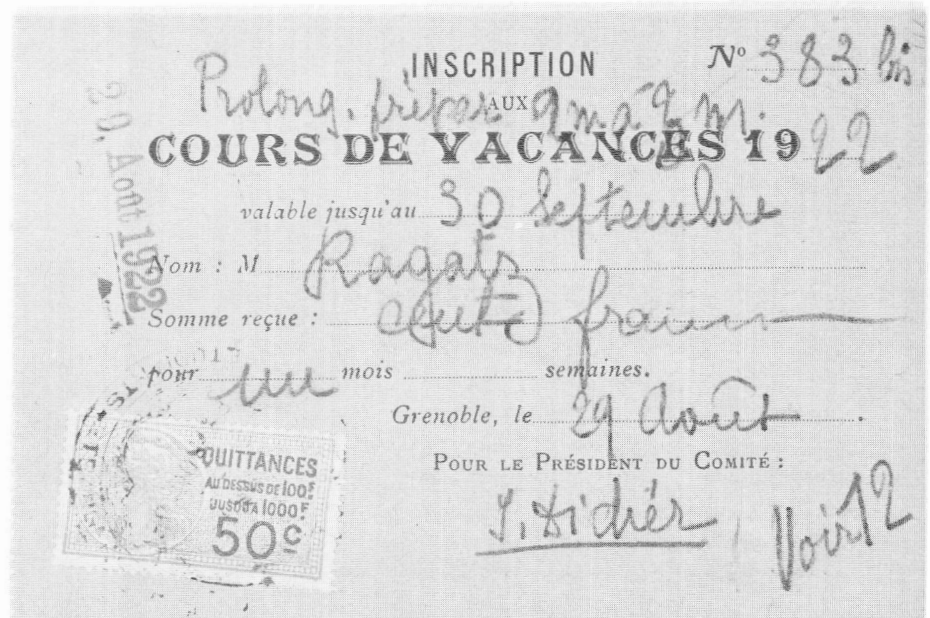 INSCRIPTION Nº 383 bis
Prolong. AUX
COURS DE VACANCES 1922
valable jusqu'au 30 Septembre
Nom : M Ragatz
Somme reçue : cent francs
pour un mois semaines.
Grenoble, le 29 Août.
POUR LE PRÉSIDENT DU COMITÉ :
J. Didier
Voir 12
30. Août 1922
QUITTANCES
AU DESSUS DE 100F
JUSQU'A 1000F
50c